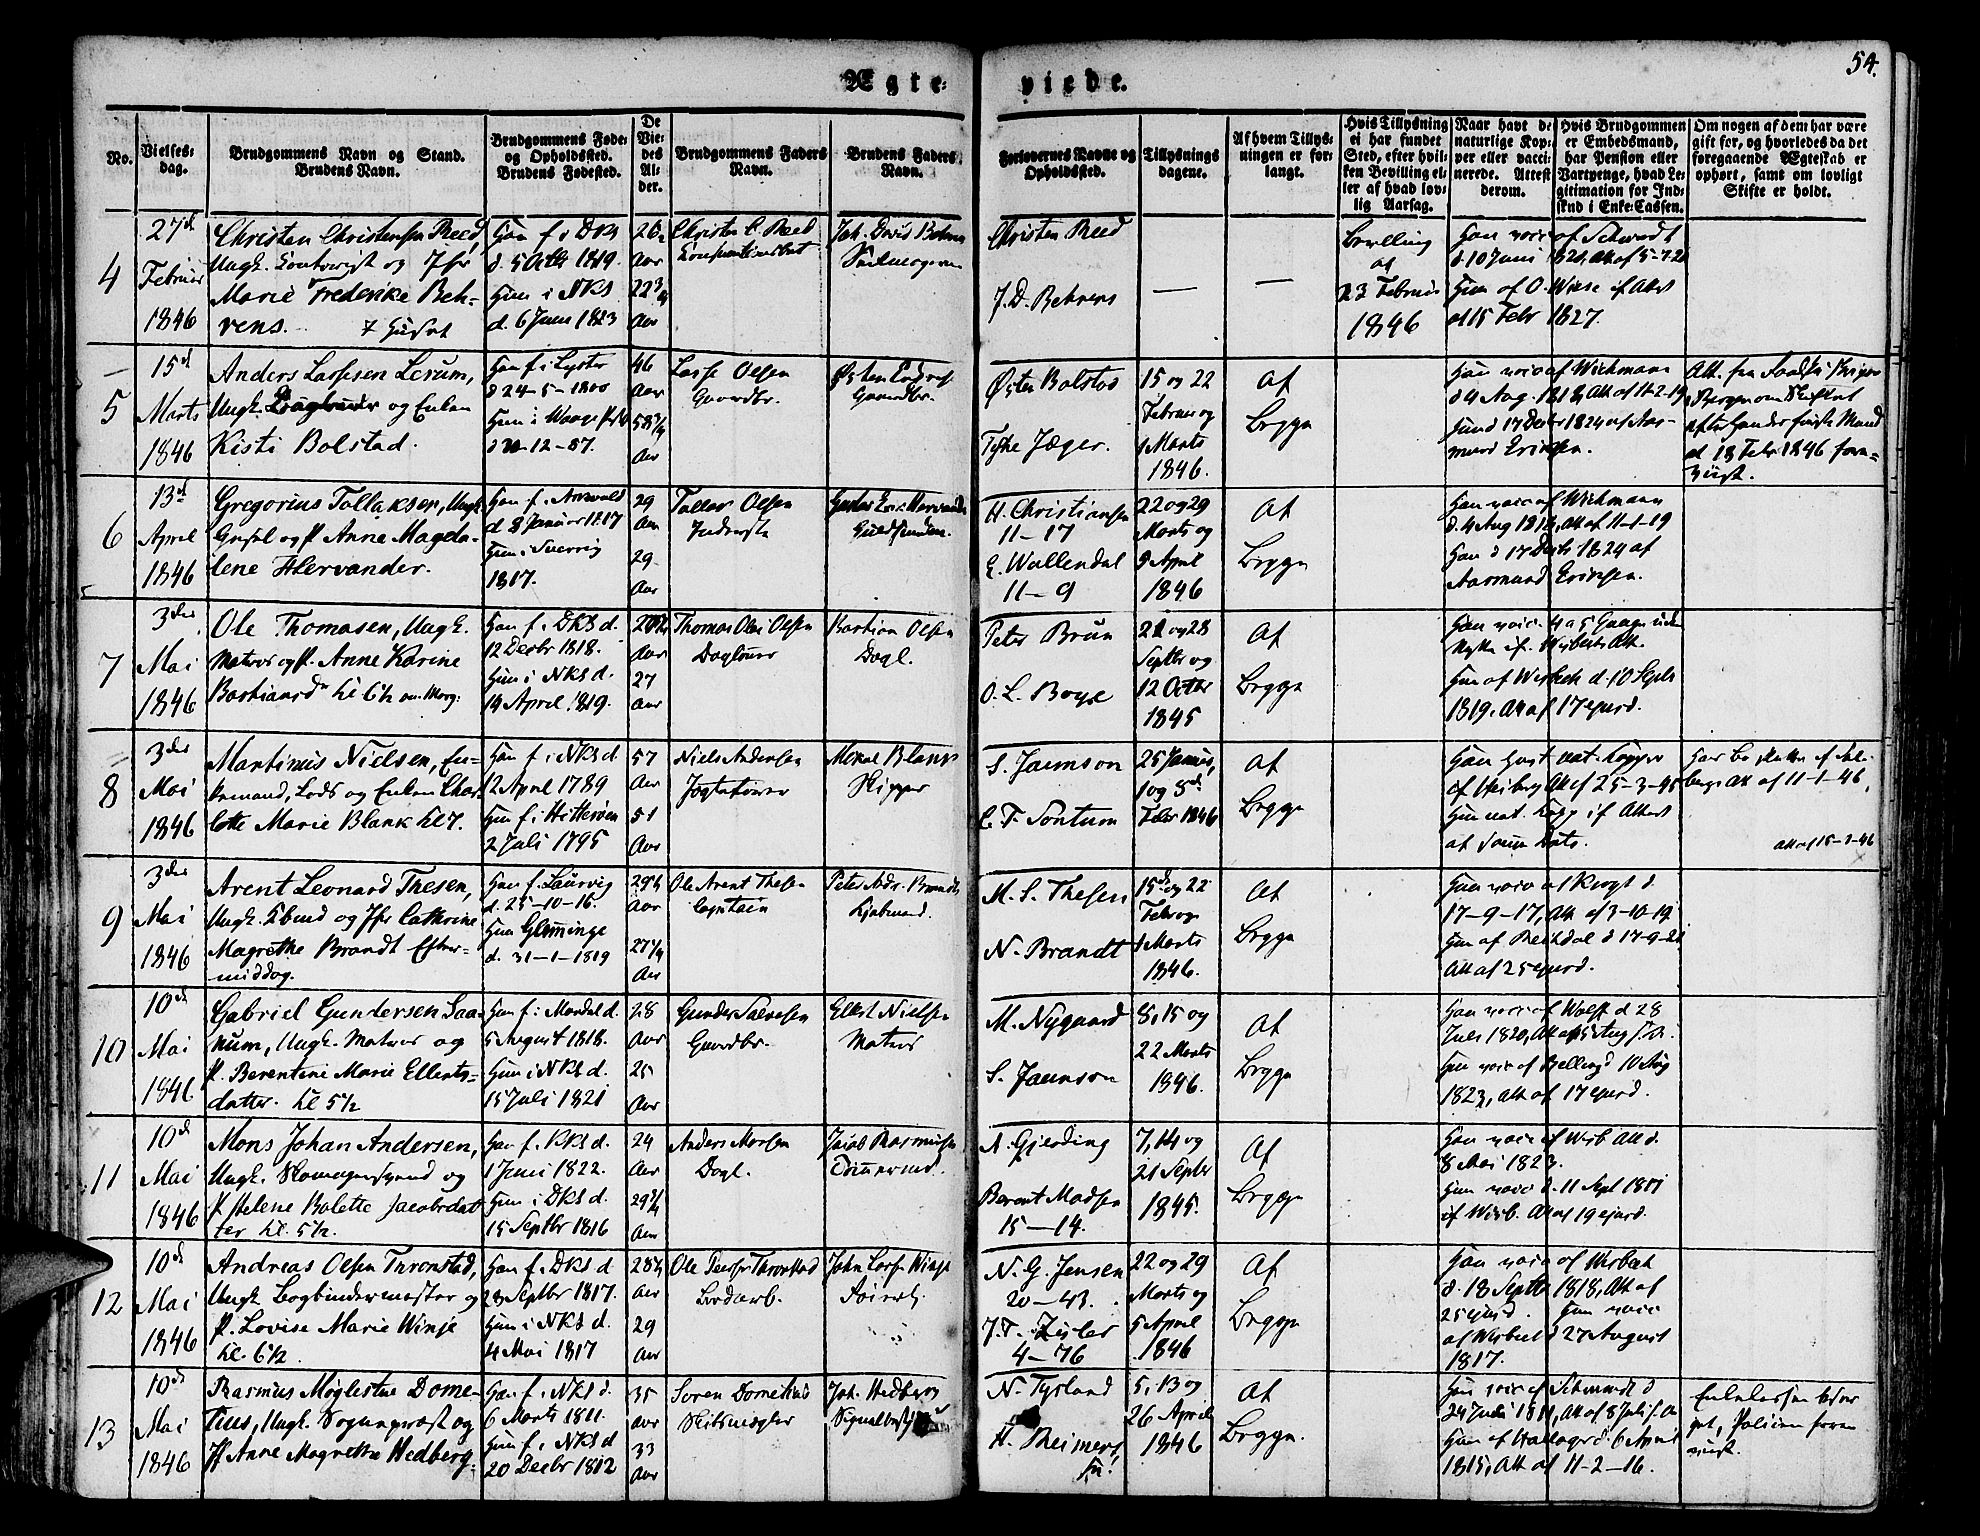 54.
Ægteviede.
No.
Vielsesdag.
Brudgommens Navn og Stand.
Brudens Navn.
Brudgommens Føde- og Opholdssted.
Brudens Fødested.
De Viedes Alder.
Brudgommens Faders Navn.
Brudens Faders Navn.
Forlovernes Navne og Opholdssted.
Tillysningsdagene.
Af hvem Tillysningen er forlangt.
Hvis Tillysning ei har fundet Sted, efter hvilken Bevilling eller af hvad lovlig Aarsag.
Naar havt de naturlige Kopper eller vaccinerede. Attest derom.
Hvis Brudgommen er Embedsmand, har Pension eller Vartpenge, hvad Legitimation for Indskud i Enke-Cassen.
Om nogen af dem har være gift før, og hvorledes da det foregaaende Ægteskab er ophørt, samt om lovligt Skifte er holdt.
4
27de
Februar
1846
Christen Christensen Reed
Ungk. Contorist og Jfr
Marie Frederike Behrens.
Han f. i DKS
d. 5 Octbr 1819.
Hun i NKS
d. 6 Juni 1823
Aar
Aar
Christen C. Reed
Joh. David Behrens
Christen Reed
J. D. Behrens
Bevilling
af
23 Februar
1846
Han vacc af Schwedt
Hun af O. Wiese if Attest
af 15 Febr 1827.
5
15de
Marts
1846
Anders Lassesen Lerum,
Ungk. og Enken
Kisti Bolstad.
Han f. i Lyster
d 24-5-1800
46
Aar
Aar
Lasse Olsen
Gaardbr.
Gaardbr.
Østen Bolstad
Tyke Jæger.
15 og 22
Februar og
1 Marts
1846.
af
Brggn
Han vacc af Wichmann
d 4 Aug 1818, Att af 11-2-19
Hun d 17 Decbr 1824 af Aasmund Eringen.
af 18 Febr 1846 forevüst.
6
13de
April
1846
Gregorius Tollaksen, Ungk.
og P. Anne Magdalene Hervander.
d. 8 Januar 1817
Hun i Sverrig
1817.
29
Aar
29
Aar
Tollak Olsen
Inderste
H. Christiansen
11-17
E. Wallendal
11-9
22 og 29
Marts og
9 April
1846
af
Brggn
Han vacc af Wichmann
d. 4 Aug 1818, Att af 11-1-19
Hun d 17 Decbr 1824 af
Aasmund Eringen.
7
3die
Mai
1846
Ole Thomasen, Ungk.
Matros og P. Anne Karine
Bastiansd
Han f. i DKS d.
12 Decbr 1818.
Hun i NKS d.
14 April 1819.
Aar
27
Aar
Thomas Olai Olsen
Dagleier
Bastian Olsen
Dagl.
Peter Brun
O. L. Boye
21 og 28
Septbr og
12 Octbr
1845
af
Brggn
Han vacc 4 a 5 Gange uden
Nytte if. Wisberts Att.
Hun af Wisbech d. 10 Septr
1819. Att af 17 ejusd.
8
3die
Mai
1846
Martinus Nielsen, Enkemand, Lods og Enken Charlotte Marie Blank kl 7.
Han f. i NKS d.
12 April 1789
Hun f. i Hitterøen
2 Juli 1795
57
Aar
51
Aar
Niels Andersen
Mekal Blank
Skipper
S. Jaunson
C. F. Sontum
25 Januar,
1 og 8de
Febr 1846
af
Brggn
Han havt nat. Kopper
af Heiberg Att af 25-3-45
Hun nat. Kopp if Attest
af samme Dato.
af 11-1-46,
Att af 15-1-46
9
3die
Mai
1846
Arent Leonard Thesen,
Ungk. Kbmd og Jfr Cathrine
Magrethe Brandt Eftermiddag.
Han f. Laurvig
d. 25-10-16.
Hun Glemminge
d. 31-1-1819
Aar
Aar
Ole Arent Thesen
Captain
Peter Andr. Brandt,
Kjøbmand.
M. S. Thesen
N. Brandt
15de og 22
Febr og
1 Marts
1846.
af
Brggn
Han vacc af Krogt d
17-9-17, Att af 3-10-19
Hun af Reichdal d 17-9-21
Att af 25 ejusd.
10
10de
Mai
1846
Gabriel Gundersen Saanum, Ungk. Matros og
P. Berentine Marie Ellertsdatter. kl 5½
Han f. i Mandal d.
5 August 1818.
Hun i NKS d.
15 Juli 1821
28
Aar
25
Aar
Gunder Salvesen
Gaardbr.
Ellert Nielsen
Matros
M. Nygaard
S. Jaunson
8, 15 og
22 Marts
1846.
af
Brggn
Han vacc af Wolff d 28
Juli 1820, Att af 15 Aug s. A.
Hun vacc af d 10 Aug
1823, Att af 17 ejusd.
11
10de
Mai
1846
Mons Johan Andersen,
Ungk. Skomagersvend og
P Helene Bolette Jacobsdatter kl. 5½.
Han f. KKS d.
1 Juni 1822.
Hun i DKS d.
15 Septbr 1816
24
Aar
Aar
Anders Monsen
Dagl.
Jacob Rasmussen
Tømmermd.
A. Gjerding
Berent Madsen
15-14.
7, 14 og
21 Septbr
1845.
af
Brggn
Han vacc af Wisb Att d.
8 Mai 1823.
Hun vacc d. 11 Sept 1801
if Wisb. Att af 19 ejusd.
12
10de
Mai
1846
Andreas Olsen Thronstad,
Ungk. Bogbindermester og
P. Lovise Marie Winje
kl. 6½
Han f. DKS d
28 Septbr 1817.
Hun i NKS d.
4 Mai 1817
Aar
29
Aar
Ole Peersen Thronstad
John Lars. Winje
N. G. Jensen
20-43.
J. T. Zisler
4-76
22 og 29
Marts og
5 April
1846
af
Brggn
Han vacc af Wisbech
d. 18 Septbr 1818, Att af
25 ejusd. Hun vacc
af Wisbech d 27 August
1817.
13
10de
Mai
1846
Rasmus Møglestue DomeTius, Ungk. Sogneprest og
Jf Anne Magrethe Hedberg.
Han f. NKS d.
6 Marts 1811.
Hun f. NKS d
20 Decbr 1812
35
Aar
33
Aar
Søren Dometius
Skibsmægler
Joh. Hedberg
N. Tysland
H. Reimers
5, 13 og
26 April
1846
af
Brggn.
Han vacc af Schwedt d
24 Juli 1811, Att af 8 Juli s. A
Hun af d. 6 April
1815, Att af 11-2-16.
Enkekassen